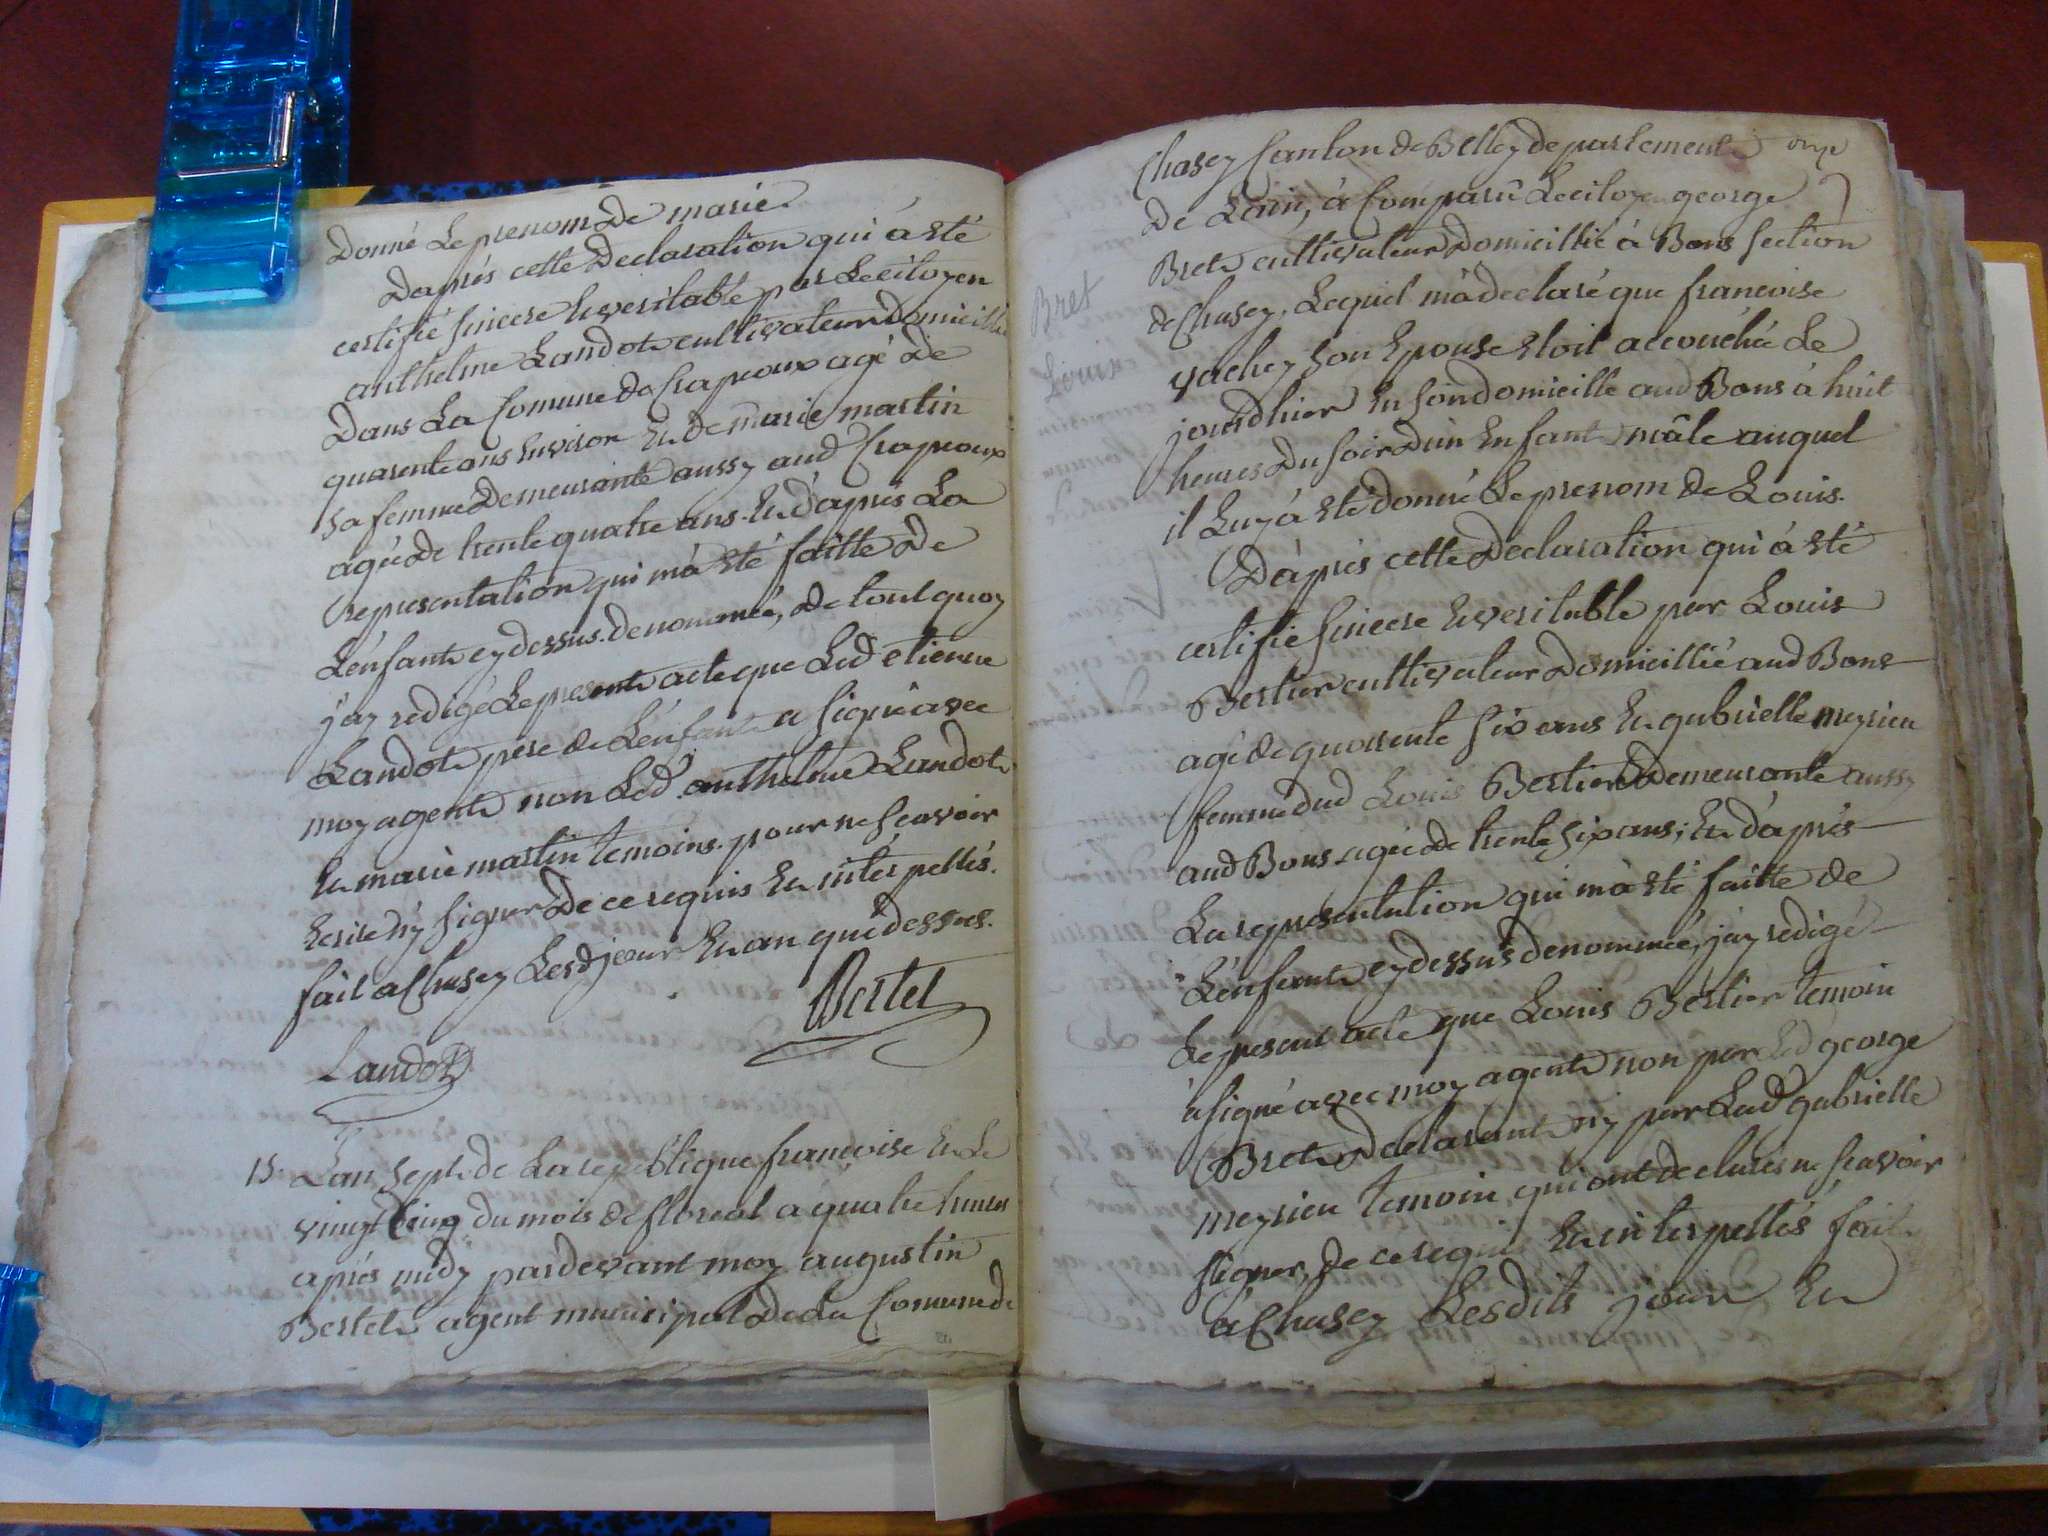 Donné Le prenom De marie.
Daprés cette Declaration qui á eté
certifié sincere Et veritable par Le citoyen
anthelme Landot cultivateur Domicillié
Dans La Comune de Crapeoux agé De
quarente ans Environ Et de marie martin
sa femme Demeurante aussy aud Crapeoux
agée de trente quatre ans. Et d'aprés La
representation qui m'á eté faitte De
L'enfant cy dessus. denommée, De tout quoy
j'ay redigé Le present acte que Led etienne
Landot pere de L'enfant a signé avec
moy agent non Led. anthelme Landot
Et marie martin temoins. pour ne scavoir
Ecrire ny signer De ce requis Et interpellés.
fait a Chasey Lesd jour Et an que dessus.
Bertet
Landot
15. Lan Sept de La republique francoise Et Le
vingt Cinq du mois de floreal a quatre heures
aprés midy pardevant moy augustin
Bertet agent municipal De La Comune de
Chasey Canton de Belley departement
De L'ain, á Comparû Le citoyen george
Bret cultivateur Domicillié á Bons section
de Chasey, Lequel m'a declaré que francoise
vachey son Epouse etoit accouchée Le
jourdhier En son domicille aud Bons á huit
heures Du soir D'un Enfant mâle auquel
il Luy á eté donné Le prenom de Louis.
Bret
Louis
D'aprés cette Declaration qui á eté
certifié sincere Et veritable par Louis
Bertier cultivateur Domicillié aud Bons
agé de quarente six ans Et gabrielle meyrieu
femme dud Louis Bertier Demeurante aussy
aud Bons agée de trente six ans; Et d'aprés
La representation qui m'á eté faitte de
L'enfant cy dessus denommé, j'ay redigé
Le present acte que Louis Bertier temoin
á signé avec moy agent non par Led george
Bret Declarant ny par Lad gabrielle
meyrieu temoin qui ont declarés ne scavoir
signer, de ce requis Et interpellés fait
á Chasey Lesdits jour Et